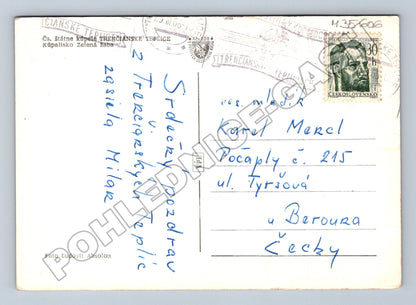 M 35/606
Čs. štátne kúpele TRENČIANSKE TEPLICE
Kúpalisko Zelená žaba
TRENČIANSKE TEPLICE
30 h
ČESKOSLOVENSKO
Srdečný pozdrav
z Trenčianských Teplic
zasiela Milan
Karel Mercl
Počaply č. 215
ul. Tyršová
u Berouna
Čechy
Foto Ľudovít Absolon
POHLEDNICE-GASPO